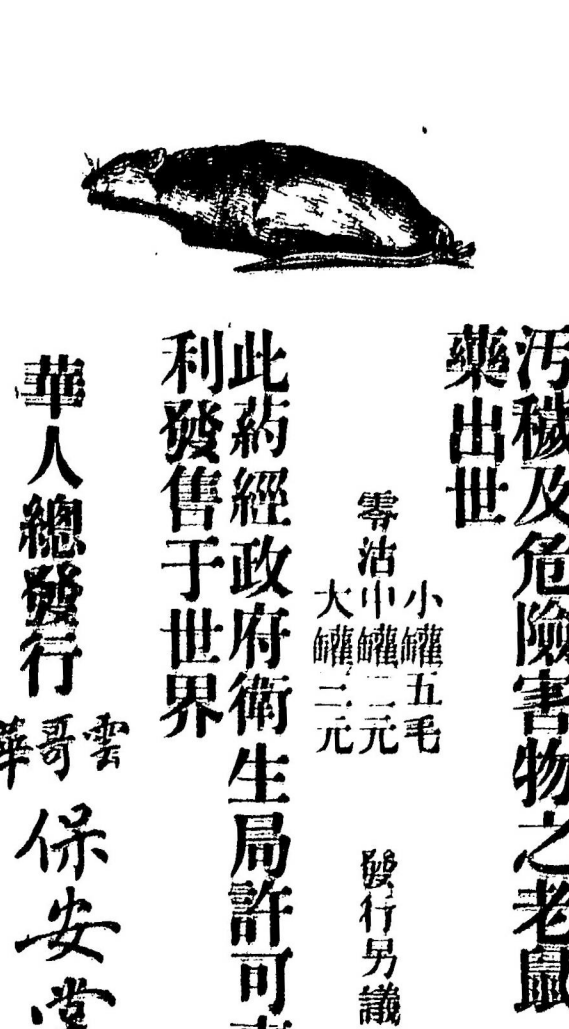 汚穢及危險害物之老鼠
藥出世
小罐五毛
零沽中罐二元
大罐三元
發行另議
此葯經政府衛生局許可
利發售于世界
華人總發行
雲哥華
保安堂